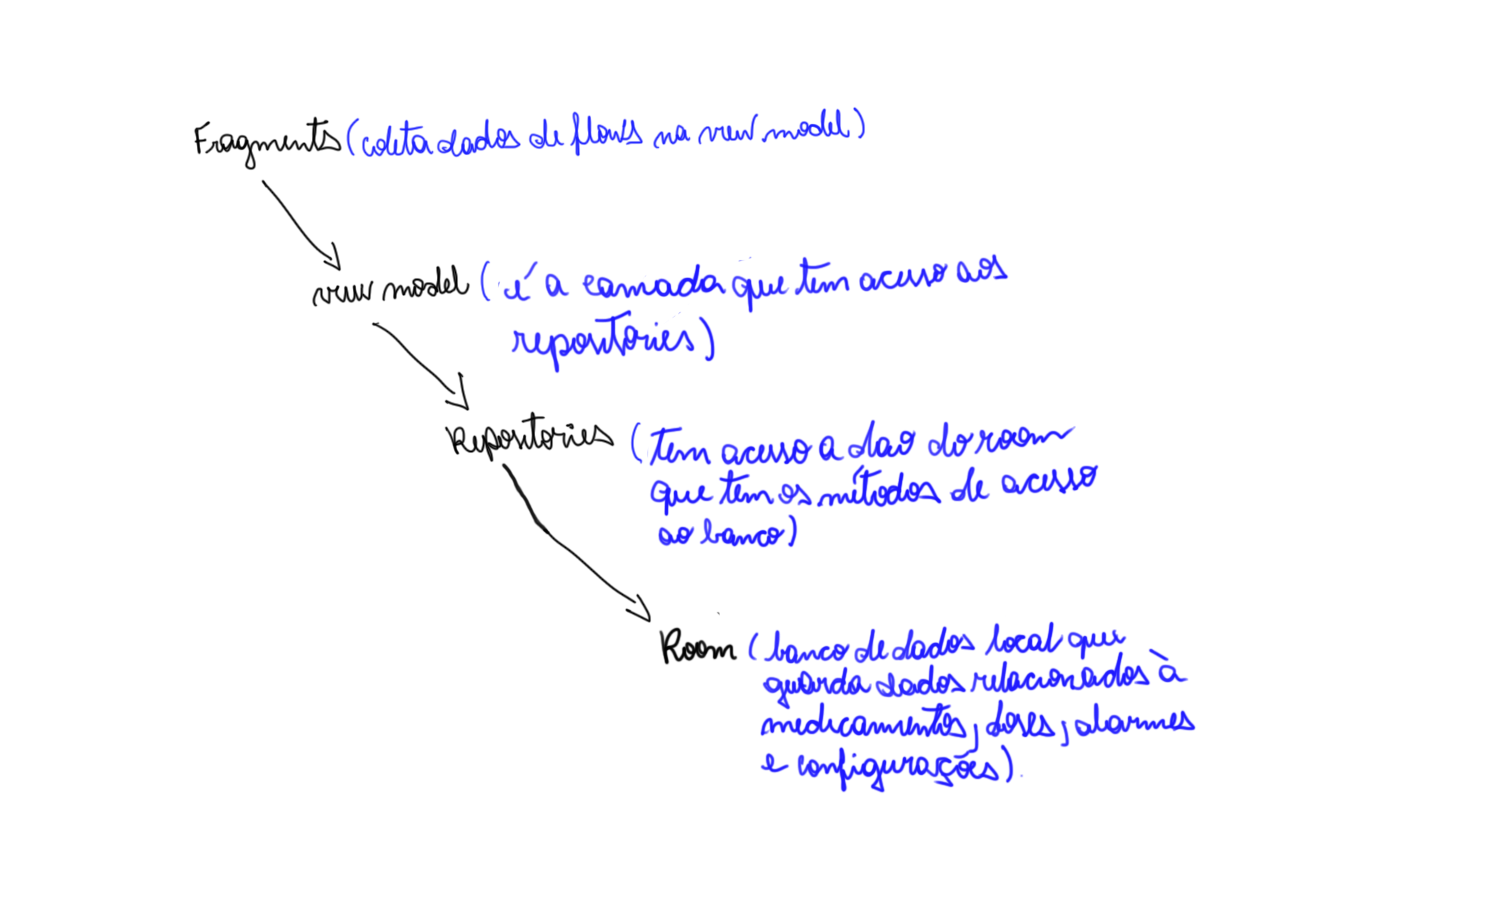 Fragments (coleta dados de flows na view model)
view model (é a camada que tem acesso aos
repositories)
Repositories (tem acesso a dao do room
que tem os métodos de acesso
ao banco)
Room (banco de dados local que
guarda dados relacionados à
medicamentos, doses, alarmes
e configurações).